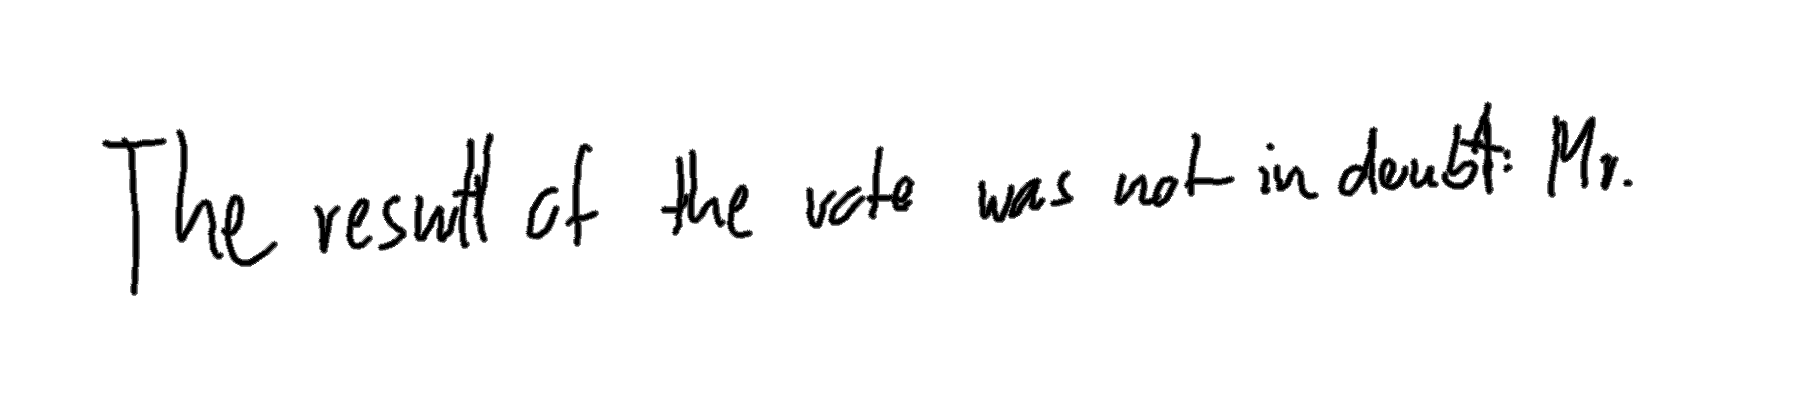 The result of the vote was not in doubt: Mr.